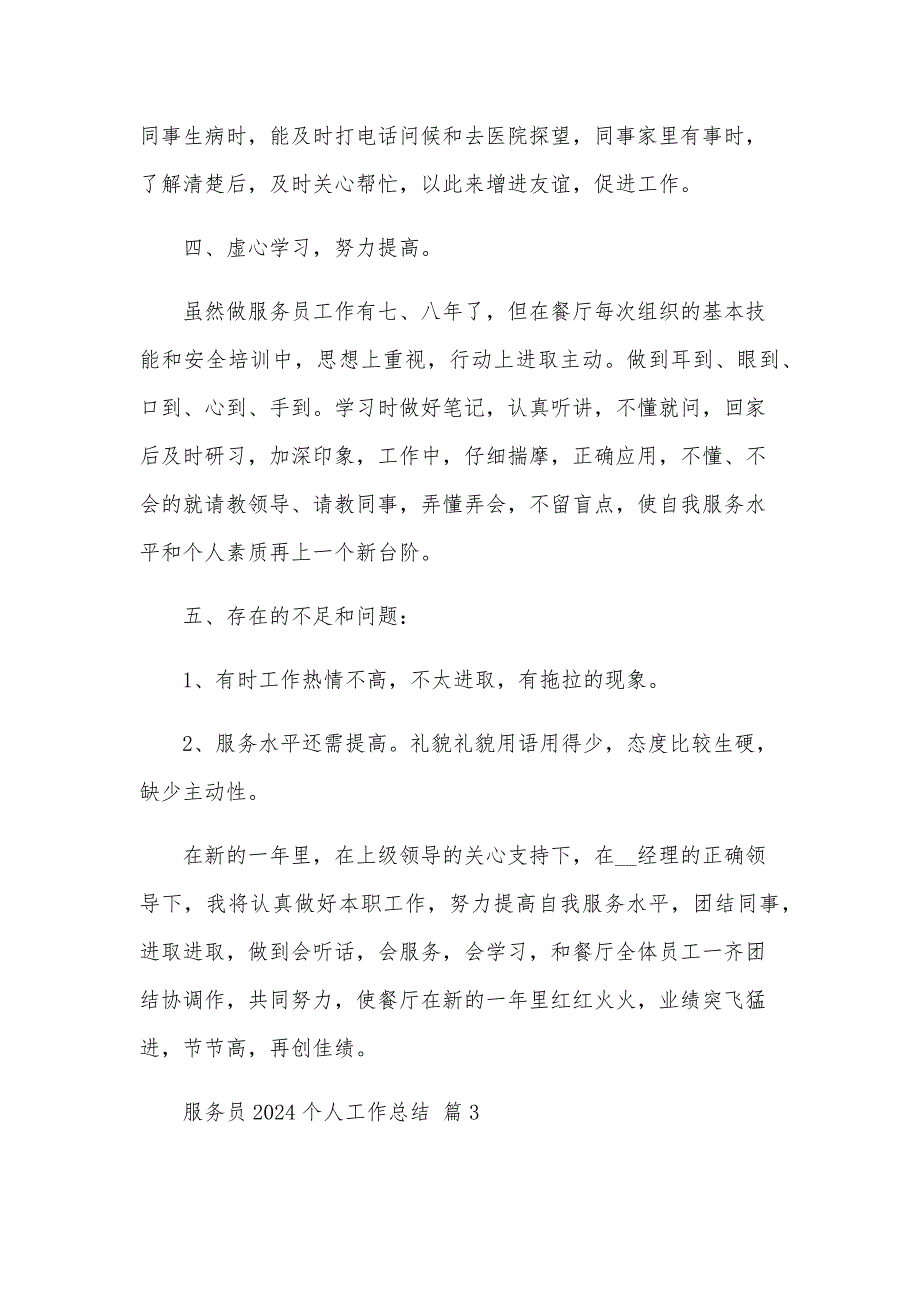 同事生病时，能及时打电话问候和去医院探望，同事家里有事时，
了解清楚后，及时关心帮忙，以此来增进友谊，促进工作。
四、虚心学习，努力提高。
虽然做服务员工作有七、八年了，但在餐厅每次组织的基本技
能和安全培训中，思想上重视，行动上进取主动。做到耳到、眼到、
口到、心到、手到。学习时做好笔记，认真听讲，不懂就问，回家
后及时研习，加深印象，工作中，仔细揣摩，正确应用，不懂、不
会的就请教领导、请教同事，弄懂弄会，不留盲点，使自我服务水
平和个人素质再上一个新台阶。
五、存在的不足和问题：
1、有时工作热情不高，不太进取，有拖拉的现象。
2、服务水平还需提高。礼貌礼貌用语用得少，态度比较生硬，
缺少主动性。
在新的一年里，在上级领导的关心支持下，在__经理的正确领
导下，我将认真做好本职工作，努力提高自我服务水平，团结同事，
进取进取，做到会听话，会服务，会学习，和餐厅全体员工一齐团
结协调作，共同努力，使餐厅在新的一年里红红火火，业绩突飞猛
进，节节高，再创佳绩。
服务员 2024 个人工作总结 篇 3